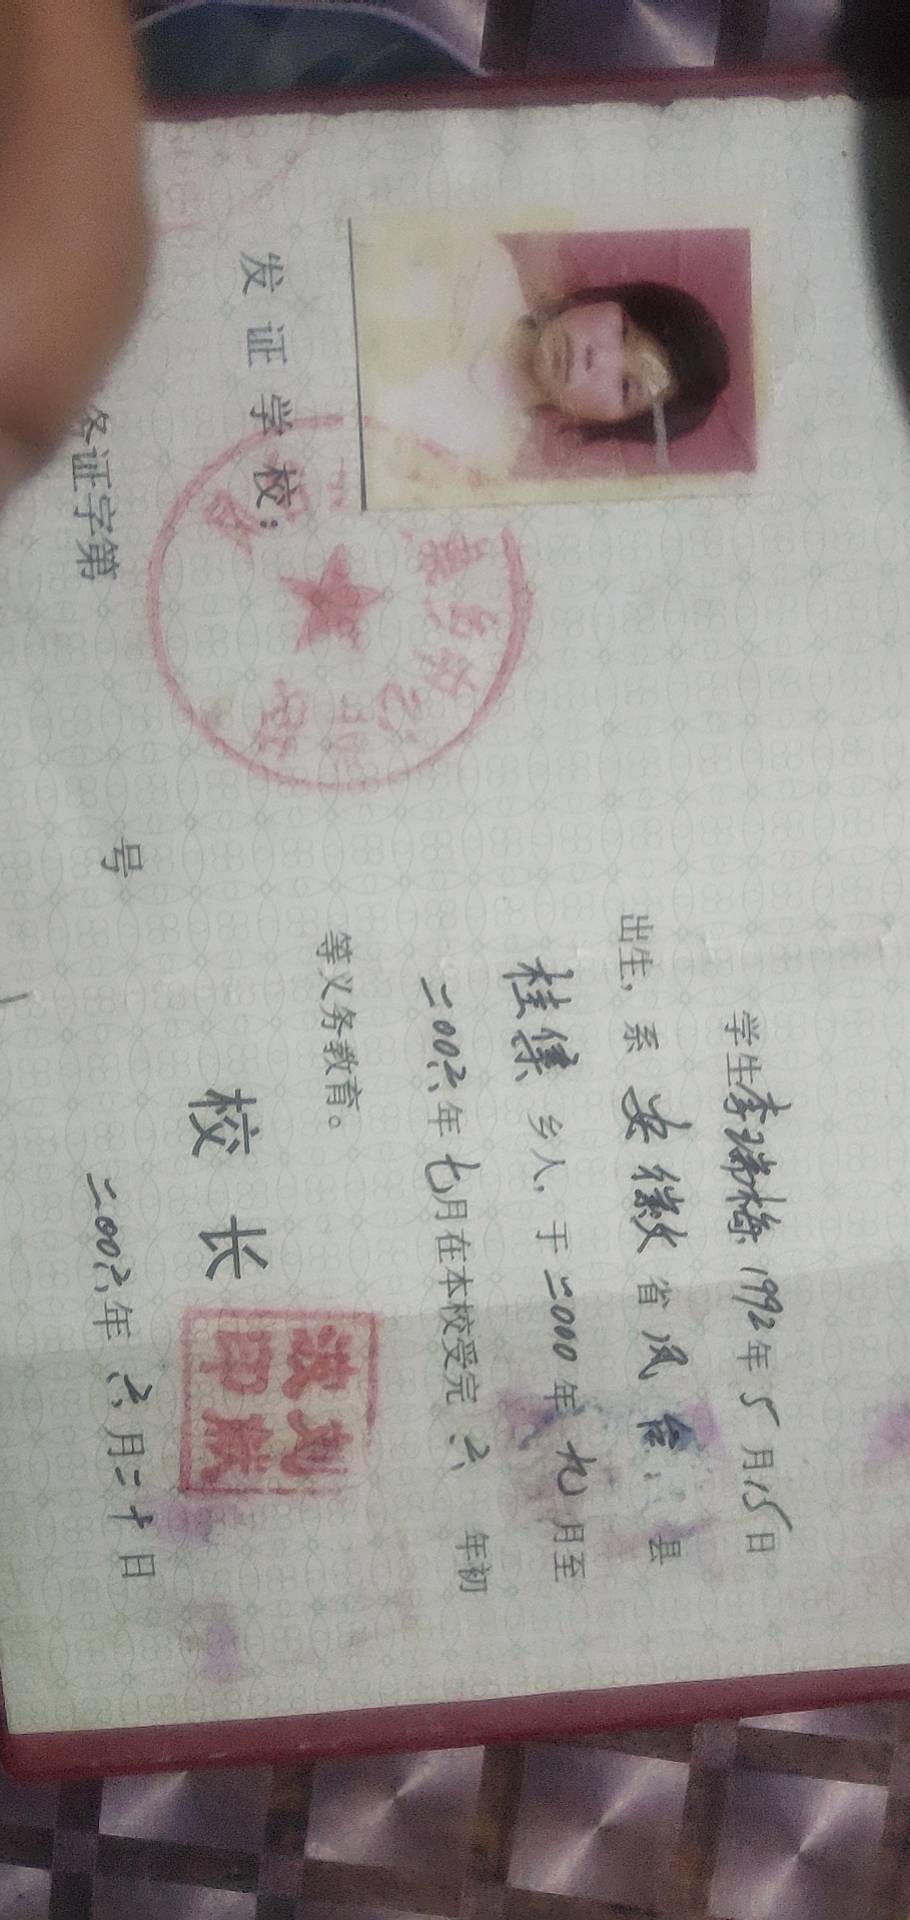 发证学校：
务证字第 号
学生李瑞梅 1992年5月15日
出生，系 安徽 省 凤台 县
桂集 乡人，于二000年九月至
二00六年七月在本校受完 六 年初
等义务教育。
校 长
二00六年 六月二十日